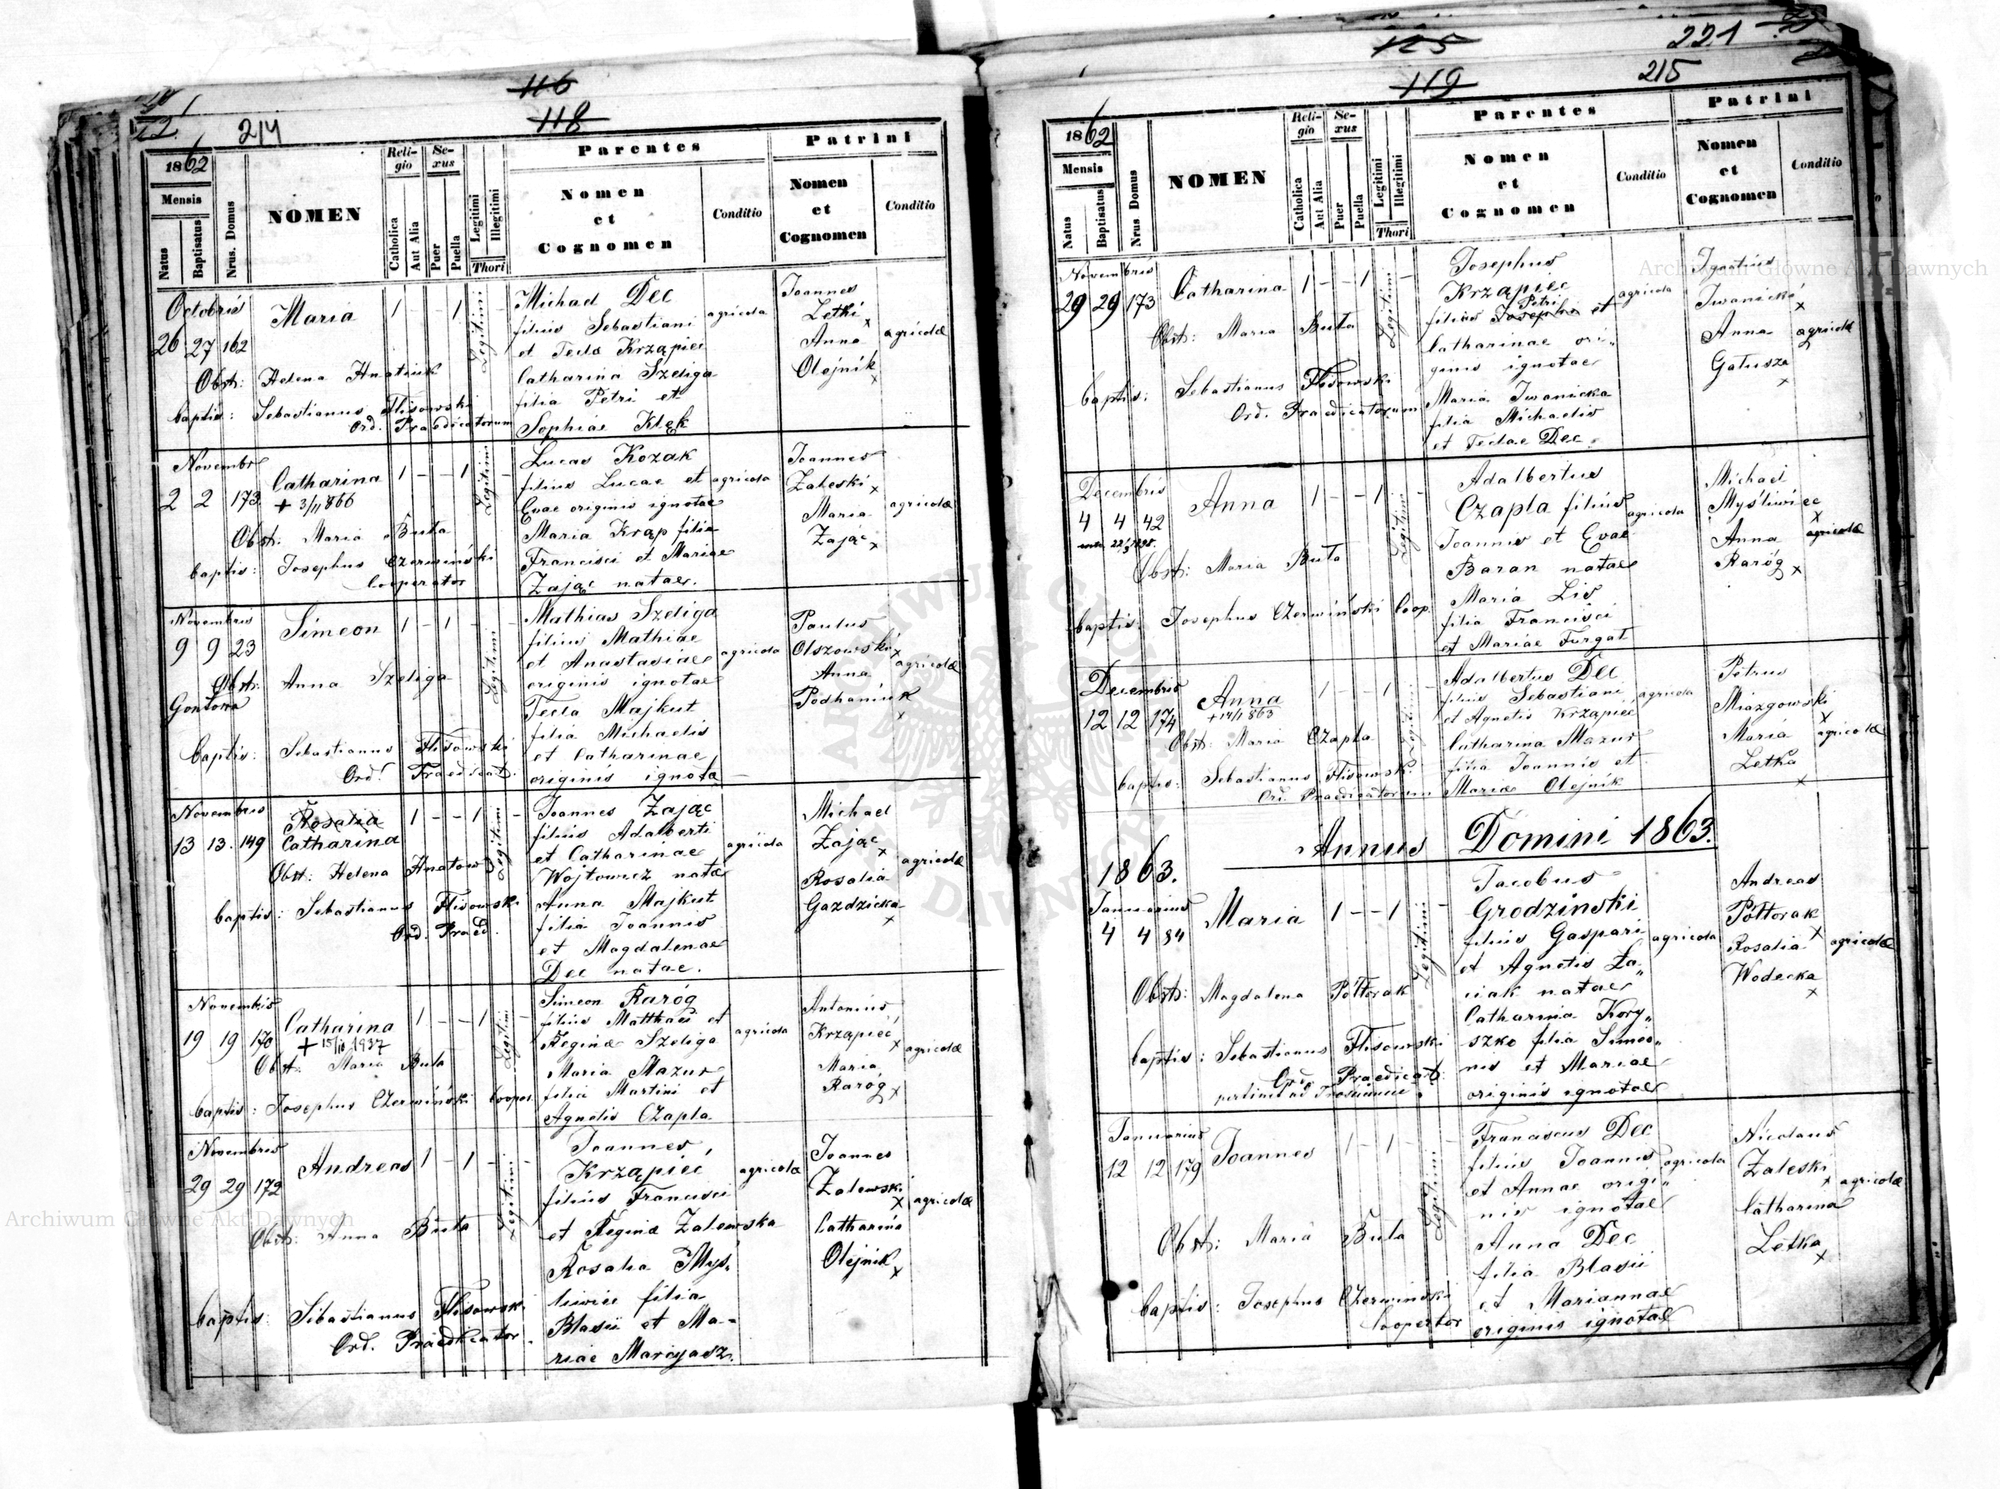 116
118
214
1862
Mensis
Natus
Baptisatus
Nrus. Domus
NOMEN
Religio
Catholica
Aut Alia
Sexus
Puer
Puella
Legitimi
Illegitimi
Thori
Parentes
Nomen
et
Cognomen
Conditio
Patrini
Nomen
et
Cognomen
Conditio
Octobris
26 27 162
Maria
1 – – 1
Legitimi
Michael Dec
filius Sebastiani
et Tecla Krząpiec
Catharina Szeliga
filia Petri et
Sophiae Kłęk
agricola
Joannes
Letki x
Anna
Olejnik x
agricolae
Obst: Helena Hnatiuk
baptis: Sebastianus Flisowski
Ord. Praedicatorum
Novembr
2 2 173
Catharina
+ 3/11 866
1 – – 1 –
Legitimi
Lucas Kozak
filius Lucae et
Evae originis ignotae
Maria Krąp filia
Francisci et Mariae
Zając natae.
agricola
Joannes
Zaleski x
Maria
Zając x
agricolae
Obst: Maria Buta
baptis: Josephus Czermiński
Cooperator
Novembris
9 9 23
Simeon
1 – 1 –
Legitimi
Mathias Szeliga
filius Mathiae
et Anastasiae
originis ignotae
Tecla Majkut
filia Michaelis
et Catharinae
originis ignotae
agricola
Paulus
Olszowski x
Anna
Podhaniuk x
agricolae
Obst: Anna Szeliga
Gontowa
baptis: Sebastianus Flisowski
Ord. Praedicat.
Novembris
13 13. 149
Rosalia
Catharina
1 – – 1 –
Legitimi
Joannes Zając
filius Adalberti
et Catharinae
Wojtowicz natae
Anna Majkut
filia Joannis
et Magdalenae
Dec natae.
agricola
Michael
Zając x
Rosalia
Gazdzicka x
agricolae
Obst: Helena Hnatow
baptis: Sebastianus Flisowski
Ord. Praed.
Novembris
19 19 170
Catharina
1 – – 1 –
Legitimi
Simeon Raróg
filius Matthaei et
Reginae Szeliga
Maria Mazur
filia Martini et
Agnetis Czapla
agricola
Antonius
Krząpiec x
Maria
Raróg x
agricolae
Obst: Maria Buta
baptis: Josephus Czermiński Cooper
Novembris
29 29 172
Andreas
1 – 1 –
Legitimi
Joannes
Krząpiec
filius Francisci
et Reginae Zalewska
Rosalia Myś,
liwiec filia
Blasii et Ma-
riae Marcyasz.
agricolae
Joannes
Zalewski x
Catharina
Olejnik x
agricolae
Obst: Anna Buta
baptis: Sebastianus Flisowski
Ord. Praedicator
125
221
119
215
1862
Mensis
Natus
Baptisatus
Nrus Domus
NOMEN
Religio
Catholica
Aut Alia
Sexus
Puer
Puella
Legitimi
Illegitimi
Thori
Parentes
Nomen
et
Cognomen
Conditio
Patrini
Nomen
et
Cognomen
Conditio
Novembris
29 29 173
Catharina
1 – – 1 –
Legitimi
Josephus
Krząpiec
Petri
filius Josephi et
Catharinae ori„
ginis ignotae
Maria Iwanicka
filia Michaelis
et Teclae Dec.
agricola
Ignatius
Iwanicki x
Anna
Gałusza x
agricolae
Obst: Maria Buta
baptis: Sebastianus Flisowski
Ord. Praedicatorum
Decembris
4 4 42
Anna
1 – – 1 –
Legitimi
Adalbertus
Czapla filius
Joannis et Evae
Baran natae
Maria Lis
filia Francisci
et Mariae Furgał
agricola
Michael
Myśliwiec x
Anna
Raróg x
agricolae
Obst: Maria Buta
baptis: Josephus Czermiński Coop.
Decembris
12 12 174
Anna
+ 14/1 863
1 – – 1 –
Legitimi
Adalbertus Dec
filius Sebastiani
et Agnetis Krząpiec
Catharina Mazur
filia Joannis et
Mariae Olejnik
agricola
Petrus
Miazgowski x
Maria
Letka x
agricolae
Obst: Maria Czapla
baptis: Sebastianus Flisowski
Ord. Praedicatorum
Annus Domini 1863.
1863.
Januarius
4 4 84
Maria
1 – – 1 –
Legitimi
Jacobus
Grodziński
filius Gaspari
et Agnetis Ła„
ciak natae
Catharina Kory„
szko filia Simeo„
nis et Mariae
originis ignotae
agricola
Andreas
Półtorak x
Rosalia
Wodecka x
agricolae
Obst: Magdalena Półtorak
baptis: Sebastianus Flisowski
Ord. Praedicat.
Januarius
12 12 179
Joannes
1 – 1 –
Legitimi
Franciscus Dec
filius Joannis
et Annae origi„
nis ignotae
Anna Dec
filia Blasii
et Mariannae
originis ignotae
agricola
Nicolaus
Zaleski x
Catharina
Letka x
agricolae
Obst: Maria Buta
baptis: Josephus Czermiński
Coopertor
Archiwum Główne Akt Dawnych
Archiwum Główne Akt Dawnych